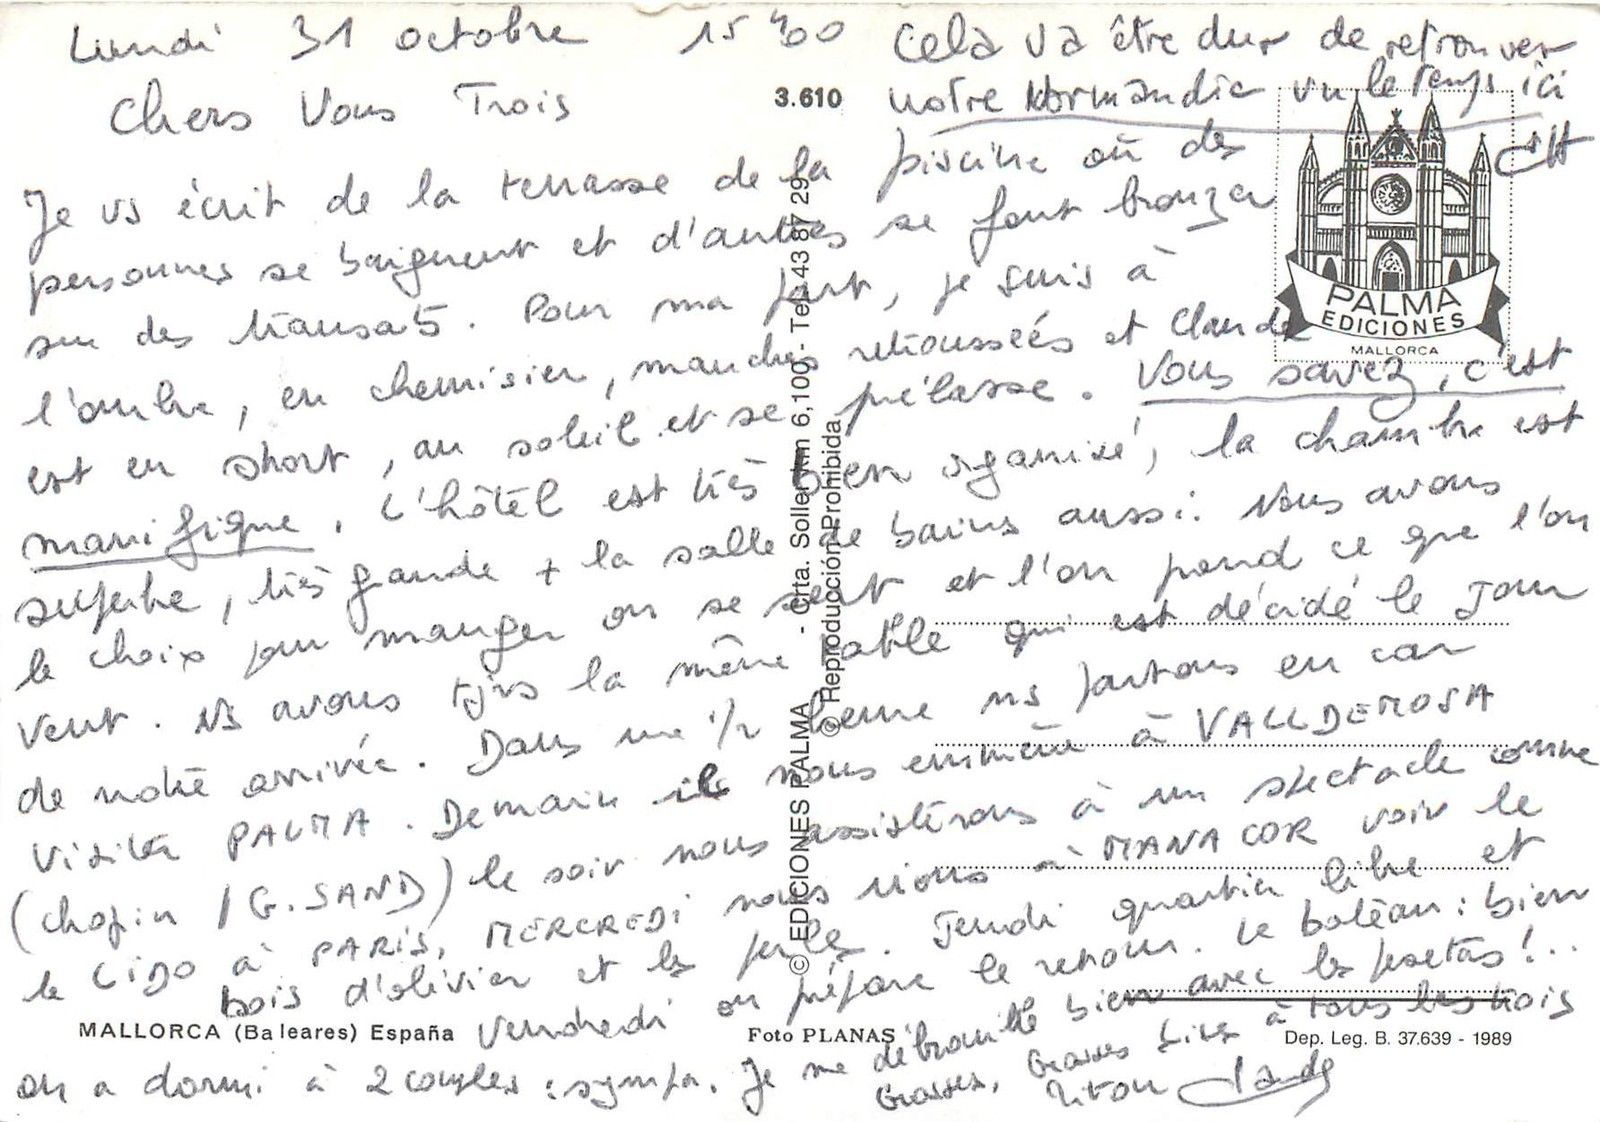 Lundi 31 octobre 15h00
Chers Vous Trois
Je vs écrit de la terrasse de la piscine où des
personnes se baignent et d'autres se font bronzer
sur des transats. Pour ma part, je suis à
l'ombre, en chemisier, manches retroussées et Claude
est en short, au soleil et se prélasse. Vous savez, c'est
manifique. L'hôtel est très bien organisé, la chambre est
superbe, très grande + la salle de bains aussi. Nous avons
le choix pour manger on se sert et l'on prend ce que l'on
veut. Ns avons tjrs la même table qui est décidé le Jour
de notre arrivée. Dans une 1/2 heure ns partons en car
visiter PALMA. Demain il nous emmène à VALLDEMOSA
(Chopin / G. SAND) le soir nous assisterons à un spectacle comme
le LIDO à PARIS, MERCREDI nous irons à MANACOR voir le
bois d'olivier et les perles. Jeudi quartier libre et
Vendredi on prépare le retour. Le bateau : bien
on a dormi à 2 couples : sympa. Je me débrouille bien avec les pesetas !..
Grosses, Grosses bises à tous les trois
Claude
Cela va être dur de retrouver
notre Normandie vu le temps ici
3.610
PALMA
EDICIONES
MALLORCA
© EDICIONES PALMA - Crta. Soller Km 6,100 - Tel. 43 87 29
© Reproducción Prohibida
MALLORCA (Baleares) España
Foto PLANAS
Dep. Leg. B. 37.639 - 1989